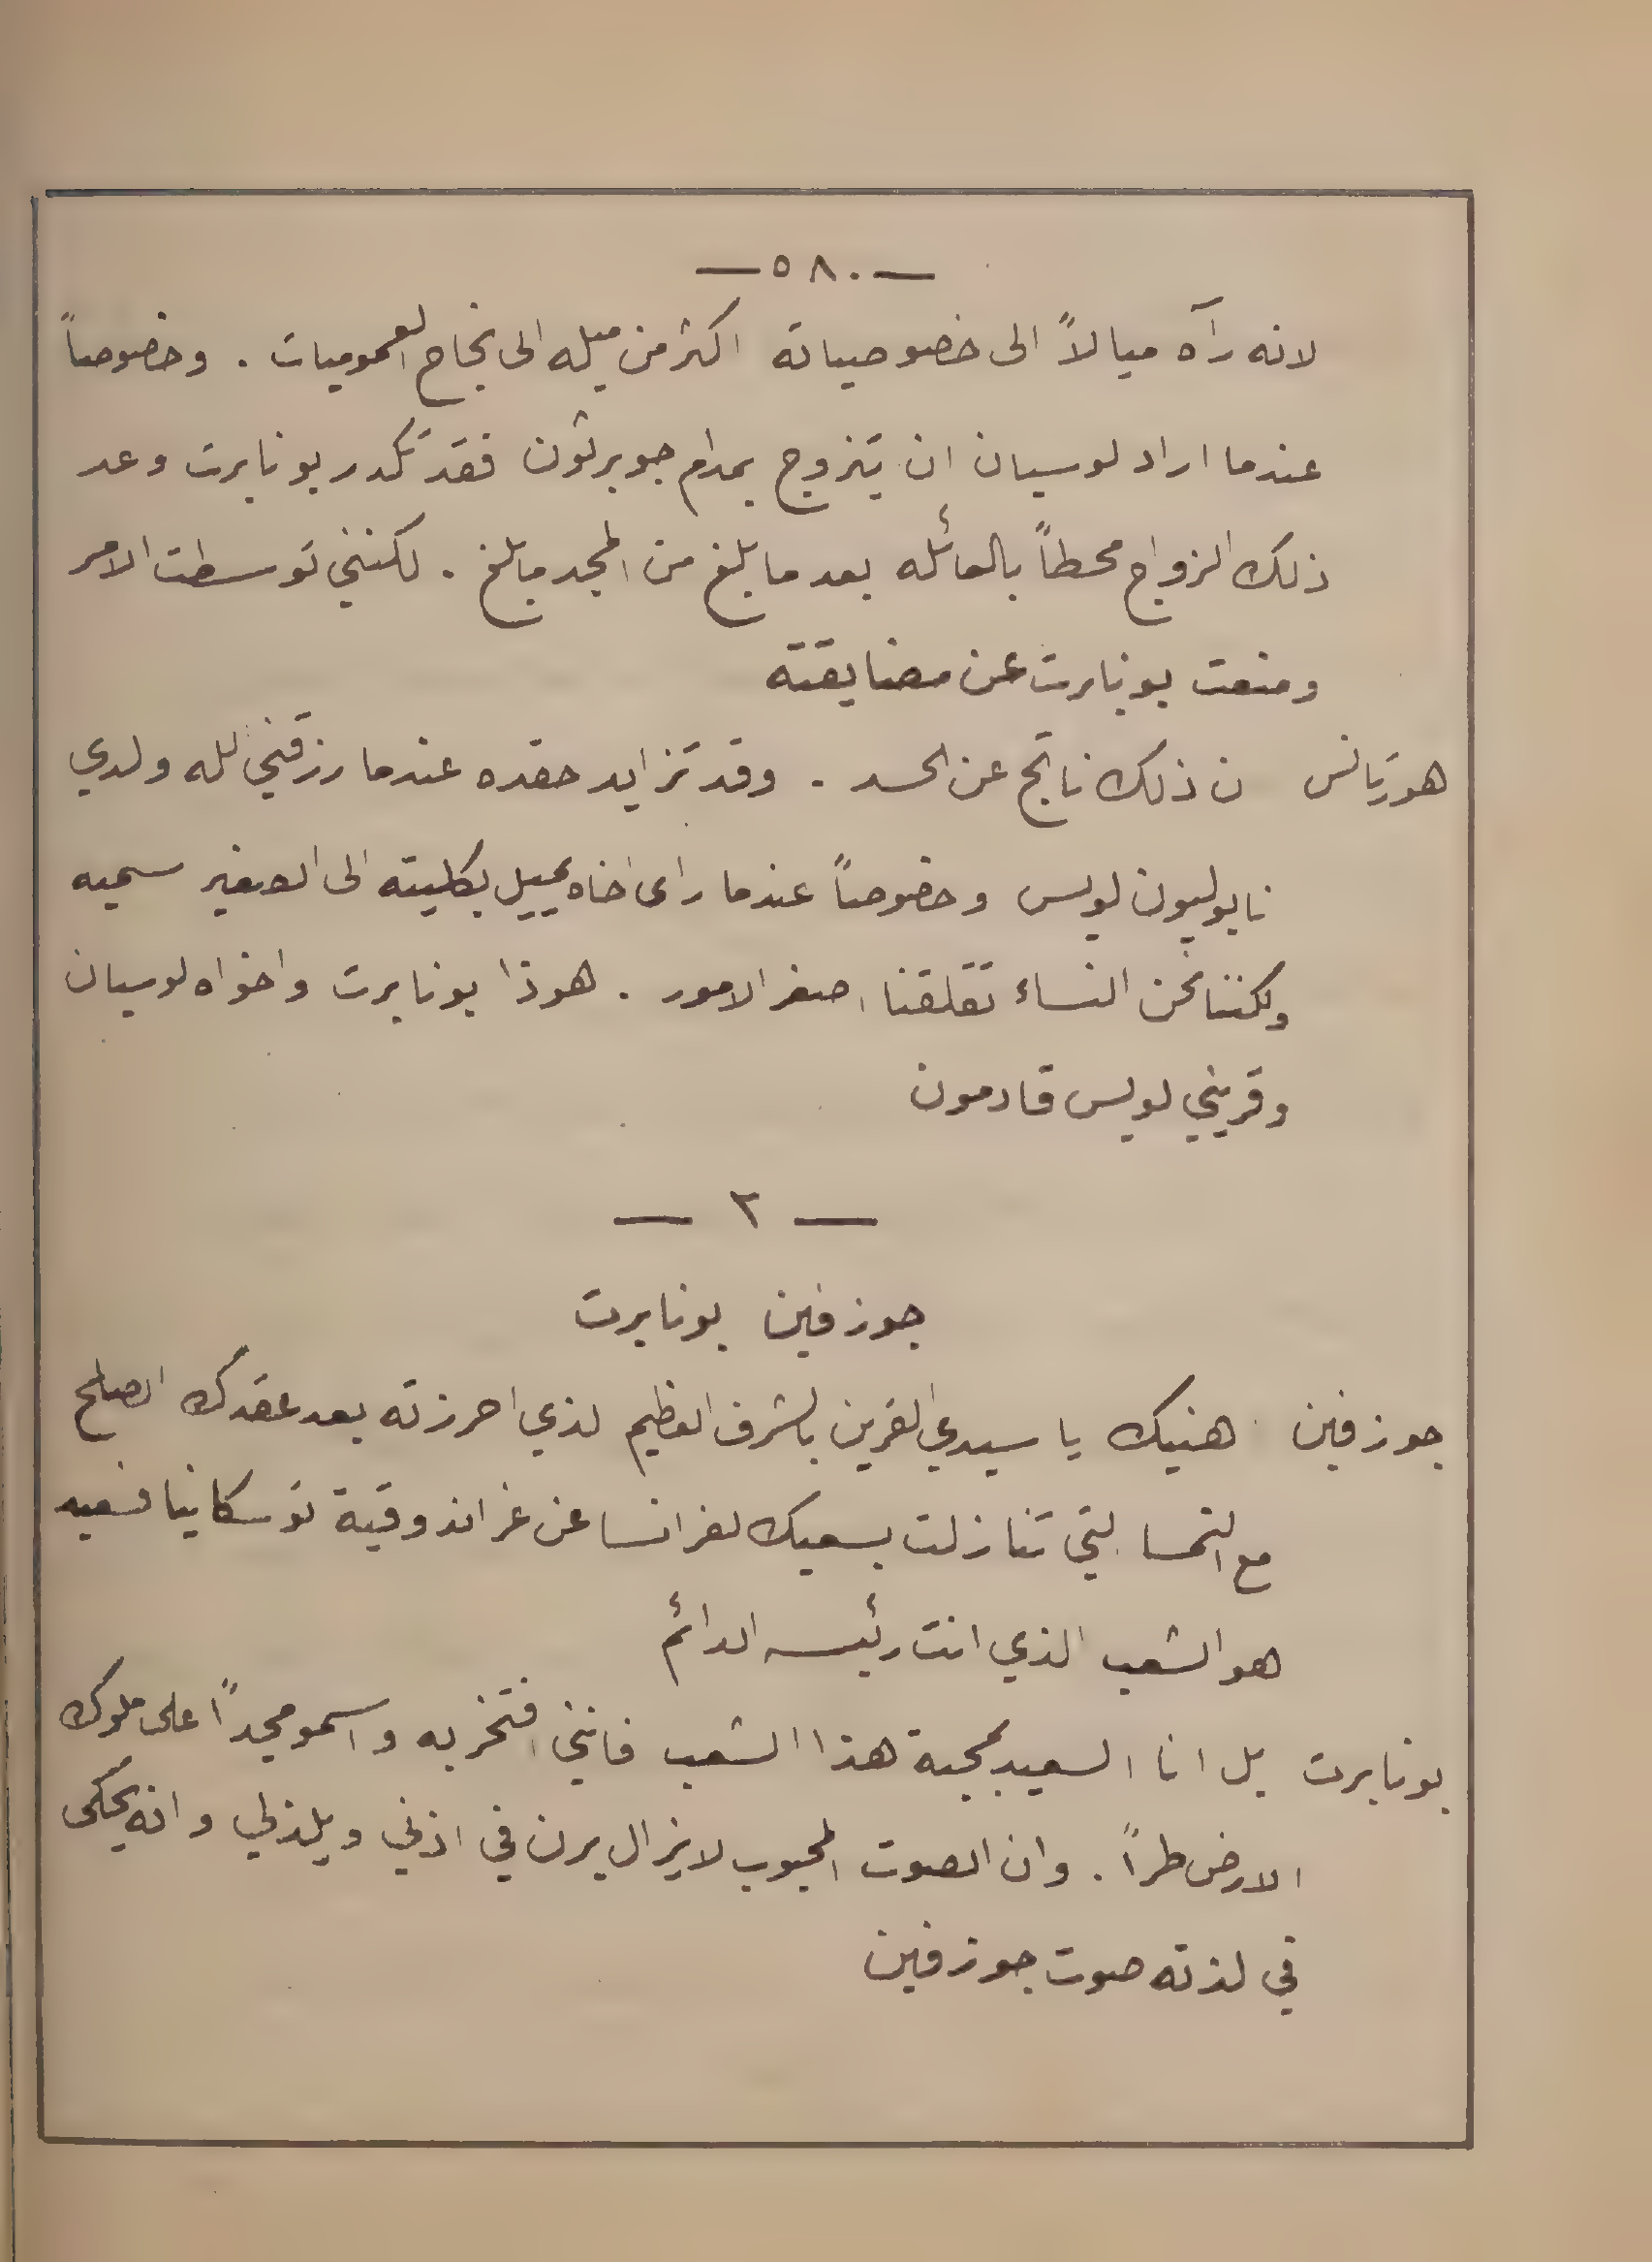 — ٥٨٠ —
لانه رآه ميالاً الى خصوصياته اكثر من ميله الى نجاح العموميات . وخصوصاً
عندما اراد لوسيان ان يتزوج بمدام جوبرثون فقد تكدر بونابرت وعد
ذلك الزواج محطاً بالعائله بعد ما بلغ من المجد ما بلغ . لكنني توسطت الامر
ومنعت بونابرت عن مضايقته
هورتانس ن ذلك ناتج عن الحسد . وقد تزايد حقده عندما رزقني لله ولدي
نابوليون لويس وخصوصاً عندما راى اخاه يميل بكليته الى الصغير سميه
ولكننا نحن النساء تقلقنا اصغر الامور . هوذا بونابرت واخواه لوسيان
وقريني لويس قادمون
— ٢ —
جوزفين بونابرت
جوزفين هنيك يا سيدي القرين بالشرف العظيم لذي احرزته بعد عقدك الصلح
مع النمسا لتي تنازلت بسعيك لفرانسا عن غراندوقية توسكانيا فسعيد
هو الشعب الذي انت رئيسه الدائم
بونابرت بل انا السعيد بمحبة هذا الشعب فانني افتخر به واسمو مجداً على ملوك
الارض طراً . وان الصوت المحبوب لا يزال يرن في اذني ويلذلي وانه يحكى
في لذته صوت جوزفين